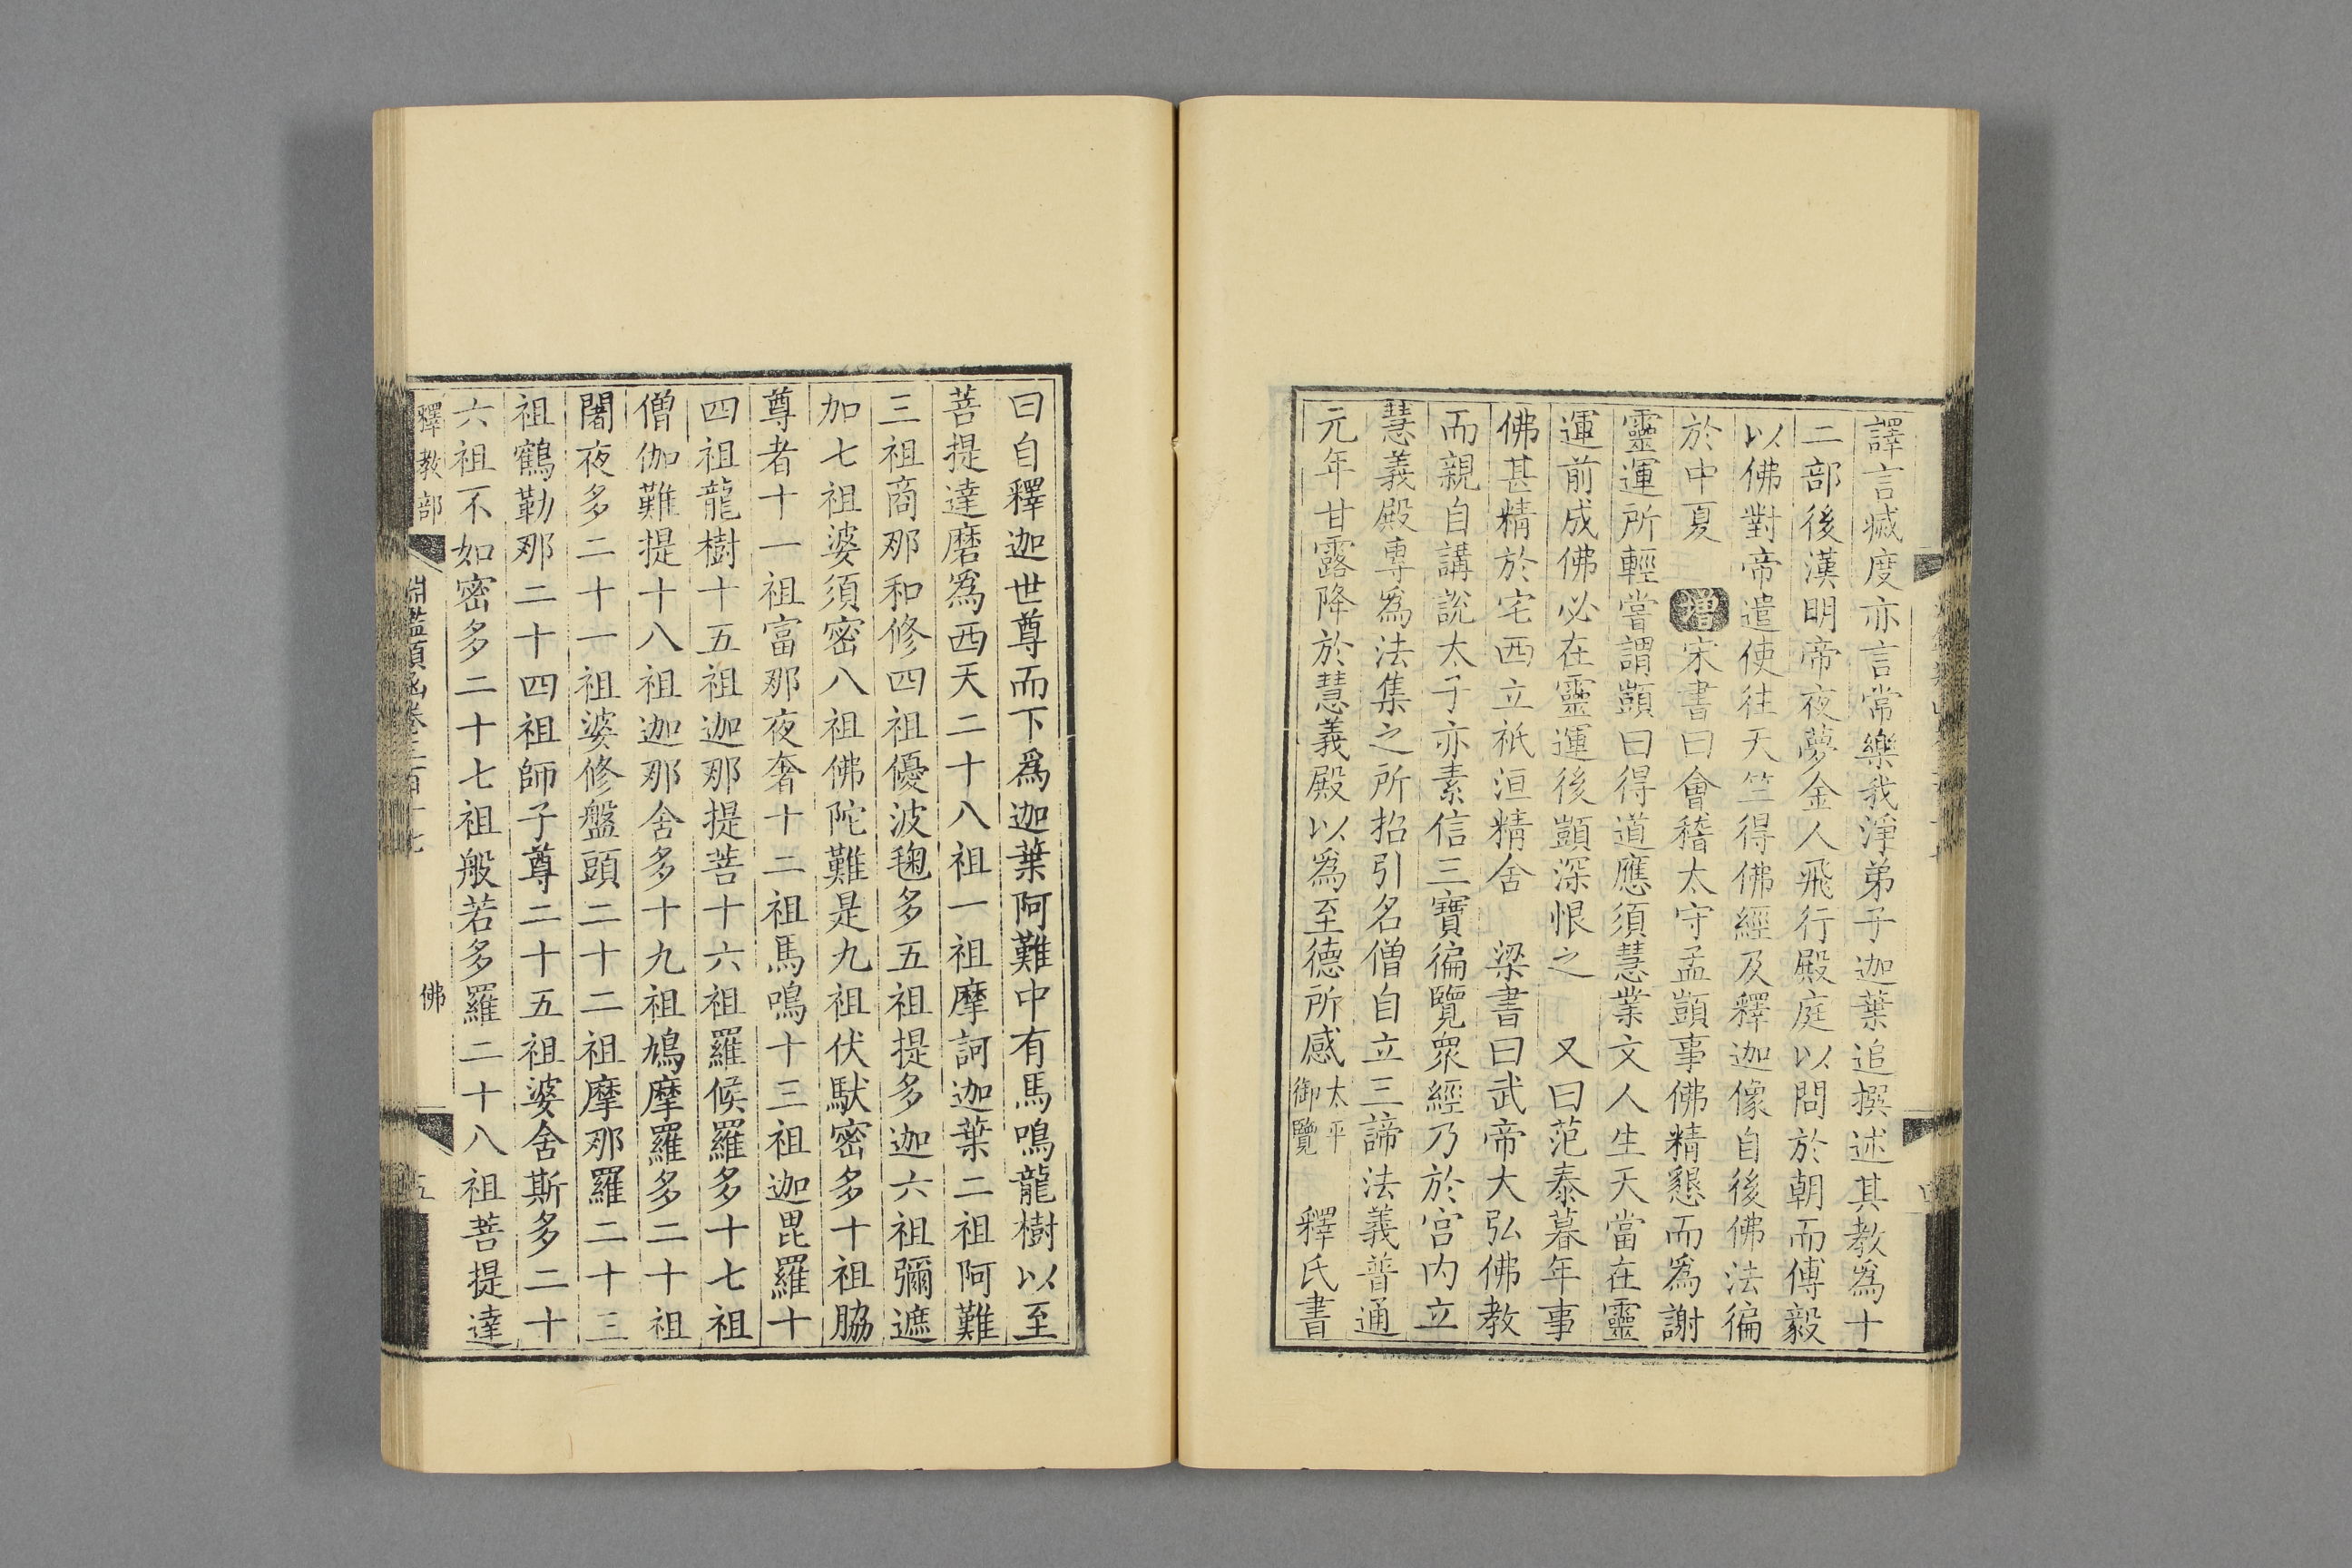 譯言滅度亦言常樂我淨弟子迦葉追撰述其教爲十
二部後漢明帝夜夢金人飛行殿庭以問於朝而傅毅
以佛對帝遣使往天竺得佛經及釋迦像自後佛法徧
於中夏 增 宋書曰會稽太守孟顗事佛精懇而爲謝
靈運所輕嘗謂顗曰得道應須慧業文人生天當在靈
運前成佛必在靈運後顗深恨之 又曰范泰暮年事
佛甚精於宅西立祇洹精舍 梁書曰武帝大弘佛教
而親自講說太子亦素信三寶徧覽眾經乃於宮内立
慧義殿專爲法集之所招引名僧自立三諦法義普通
元年甘露降於慧義殿以爲至德所感太平御覽 釋氏書
曰自釋迦世尊而下爲迦葉阿難中有馬鳴龍樹以至
菩提達磨爲西天二十八祖一祖摩訶迦葉二祖阿難
三祖商那和修四祖優波毱多五祖提多迦六祖彌遮
加七祖婆須密八祖佛陀難是九祖伏馱密多十祖脇
尊者十一祖富那夜奢十二祖馬鳴十三祖迦毘羅十
四祖龍樹十五祖迦那提菩十六祖羅候羅多十七祖
僧伽難提十八祖迦那舍多十九祖鳩摩羅多二十祖
闍夜多二十一祖婆修盤頭二十二祖摩那羅二十三
祖鶴勒那二十四祖師子尊二十五祖婆舍斯多二十
六祖不如密多二十七祖般若多羅二十八祖菩提達
釋教部 淵鑑類函卷三百十七 佛 五